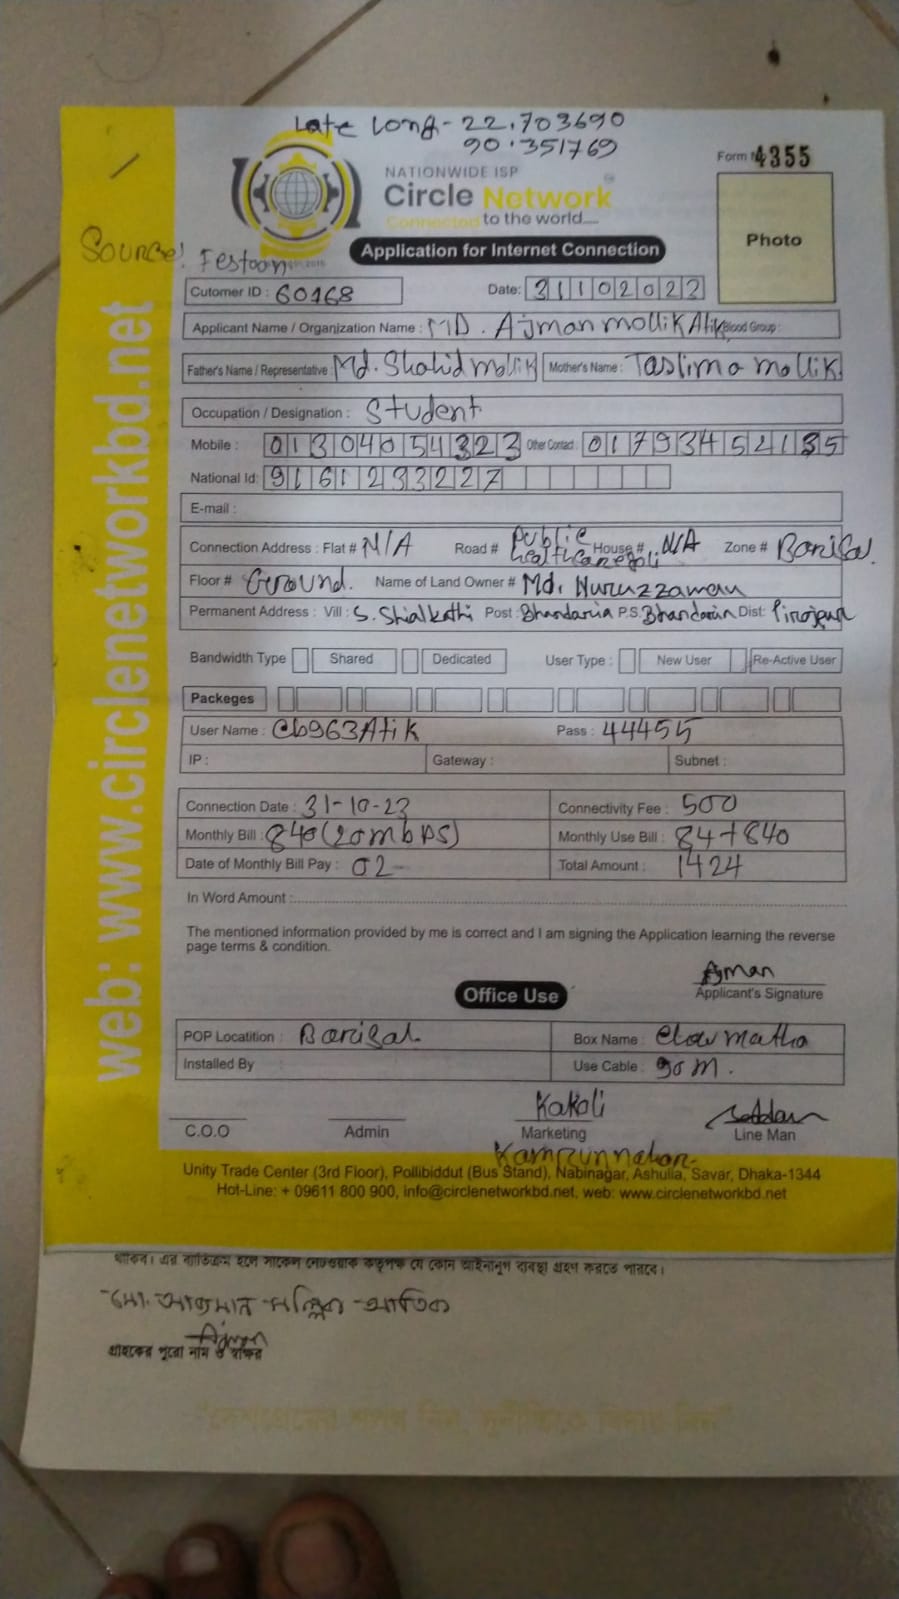 Late Long - 22.703690
90.351769
Form No 4355
NATIONWIDE ISP
Circle Network
Connected to the world....
Photo
Source: Festoon
Application for Internet Connection
Cutomer ID : 60168 Date: 31102023
Applicant Name / Organization Name : MD. Ajman mollik Atik Blood Group :
Father's Name / Representative : Md. Shahid mollik Mother's Name : Taslima mollik
Occupation / Designation : Student
Mobile : 01304054323 Other Contact : 01793452135
National Id: 9161233227
E-mail :
Connection Address : Flat # N/A Road # Public House # N/A Zone # Barisal
Floor # Ground. Name of Land Owner # Md. Nuruzzaman
Permanent Address : Vill : S. Shialkathi Post : Bhandaria P.S. Bhandaria Dist: Pirojpur
Bandwidth Type Shared Dedicated User Type : New User Re-Active User
Packeges
User Name : Cb963Atik Pass : 44455
IP : Gateway : Subnet :
Connection Date : 31-10-23 Connectivity Fee : 500
Monthly Bill : 840 (20mbps) Monthly Use Bill : 84+840
Date of Monthly Bill Pay : 02 Total Amount : 1424
In Word Amount :
The mentioned information provided by me is correct and I am signing the Application learning the reverse
page terms & condition.
Ajman
Applicant's Signature
Office Use
POP Locatition : Barisal Box Name : Chowmatha
Installed By Use Cable : 90 m.
Kakoli
C.O.O Admin Marketing Line Man
Kamrunnahar
Unity Trade Center (3rd Floor), Pollibiddut (Bus Stand), Nabinagar, Ashulia, Savar, Dhaka-1344
Hot-Line: + 09611 800 900, info@circlenetworkbd.net, web: www.circlenetworkbd.net
web: www.circlenetworkbd.net
থাকিব। এর ব্যতিক্রম হলে সার্কেল নেটওয়ার্ক কর্তৃপক্ষ যে কোন আইনানুগ ব্যবস্থা গ্রহণ করতে পারবে।
মো. আজমান মল্লিক আতিক
Ajman
গ্রাহকের পুরো নাম ও স্বাক্ষর